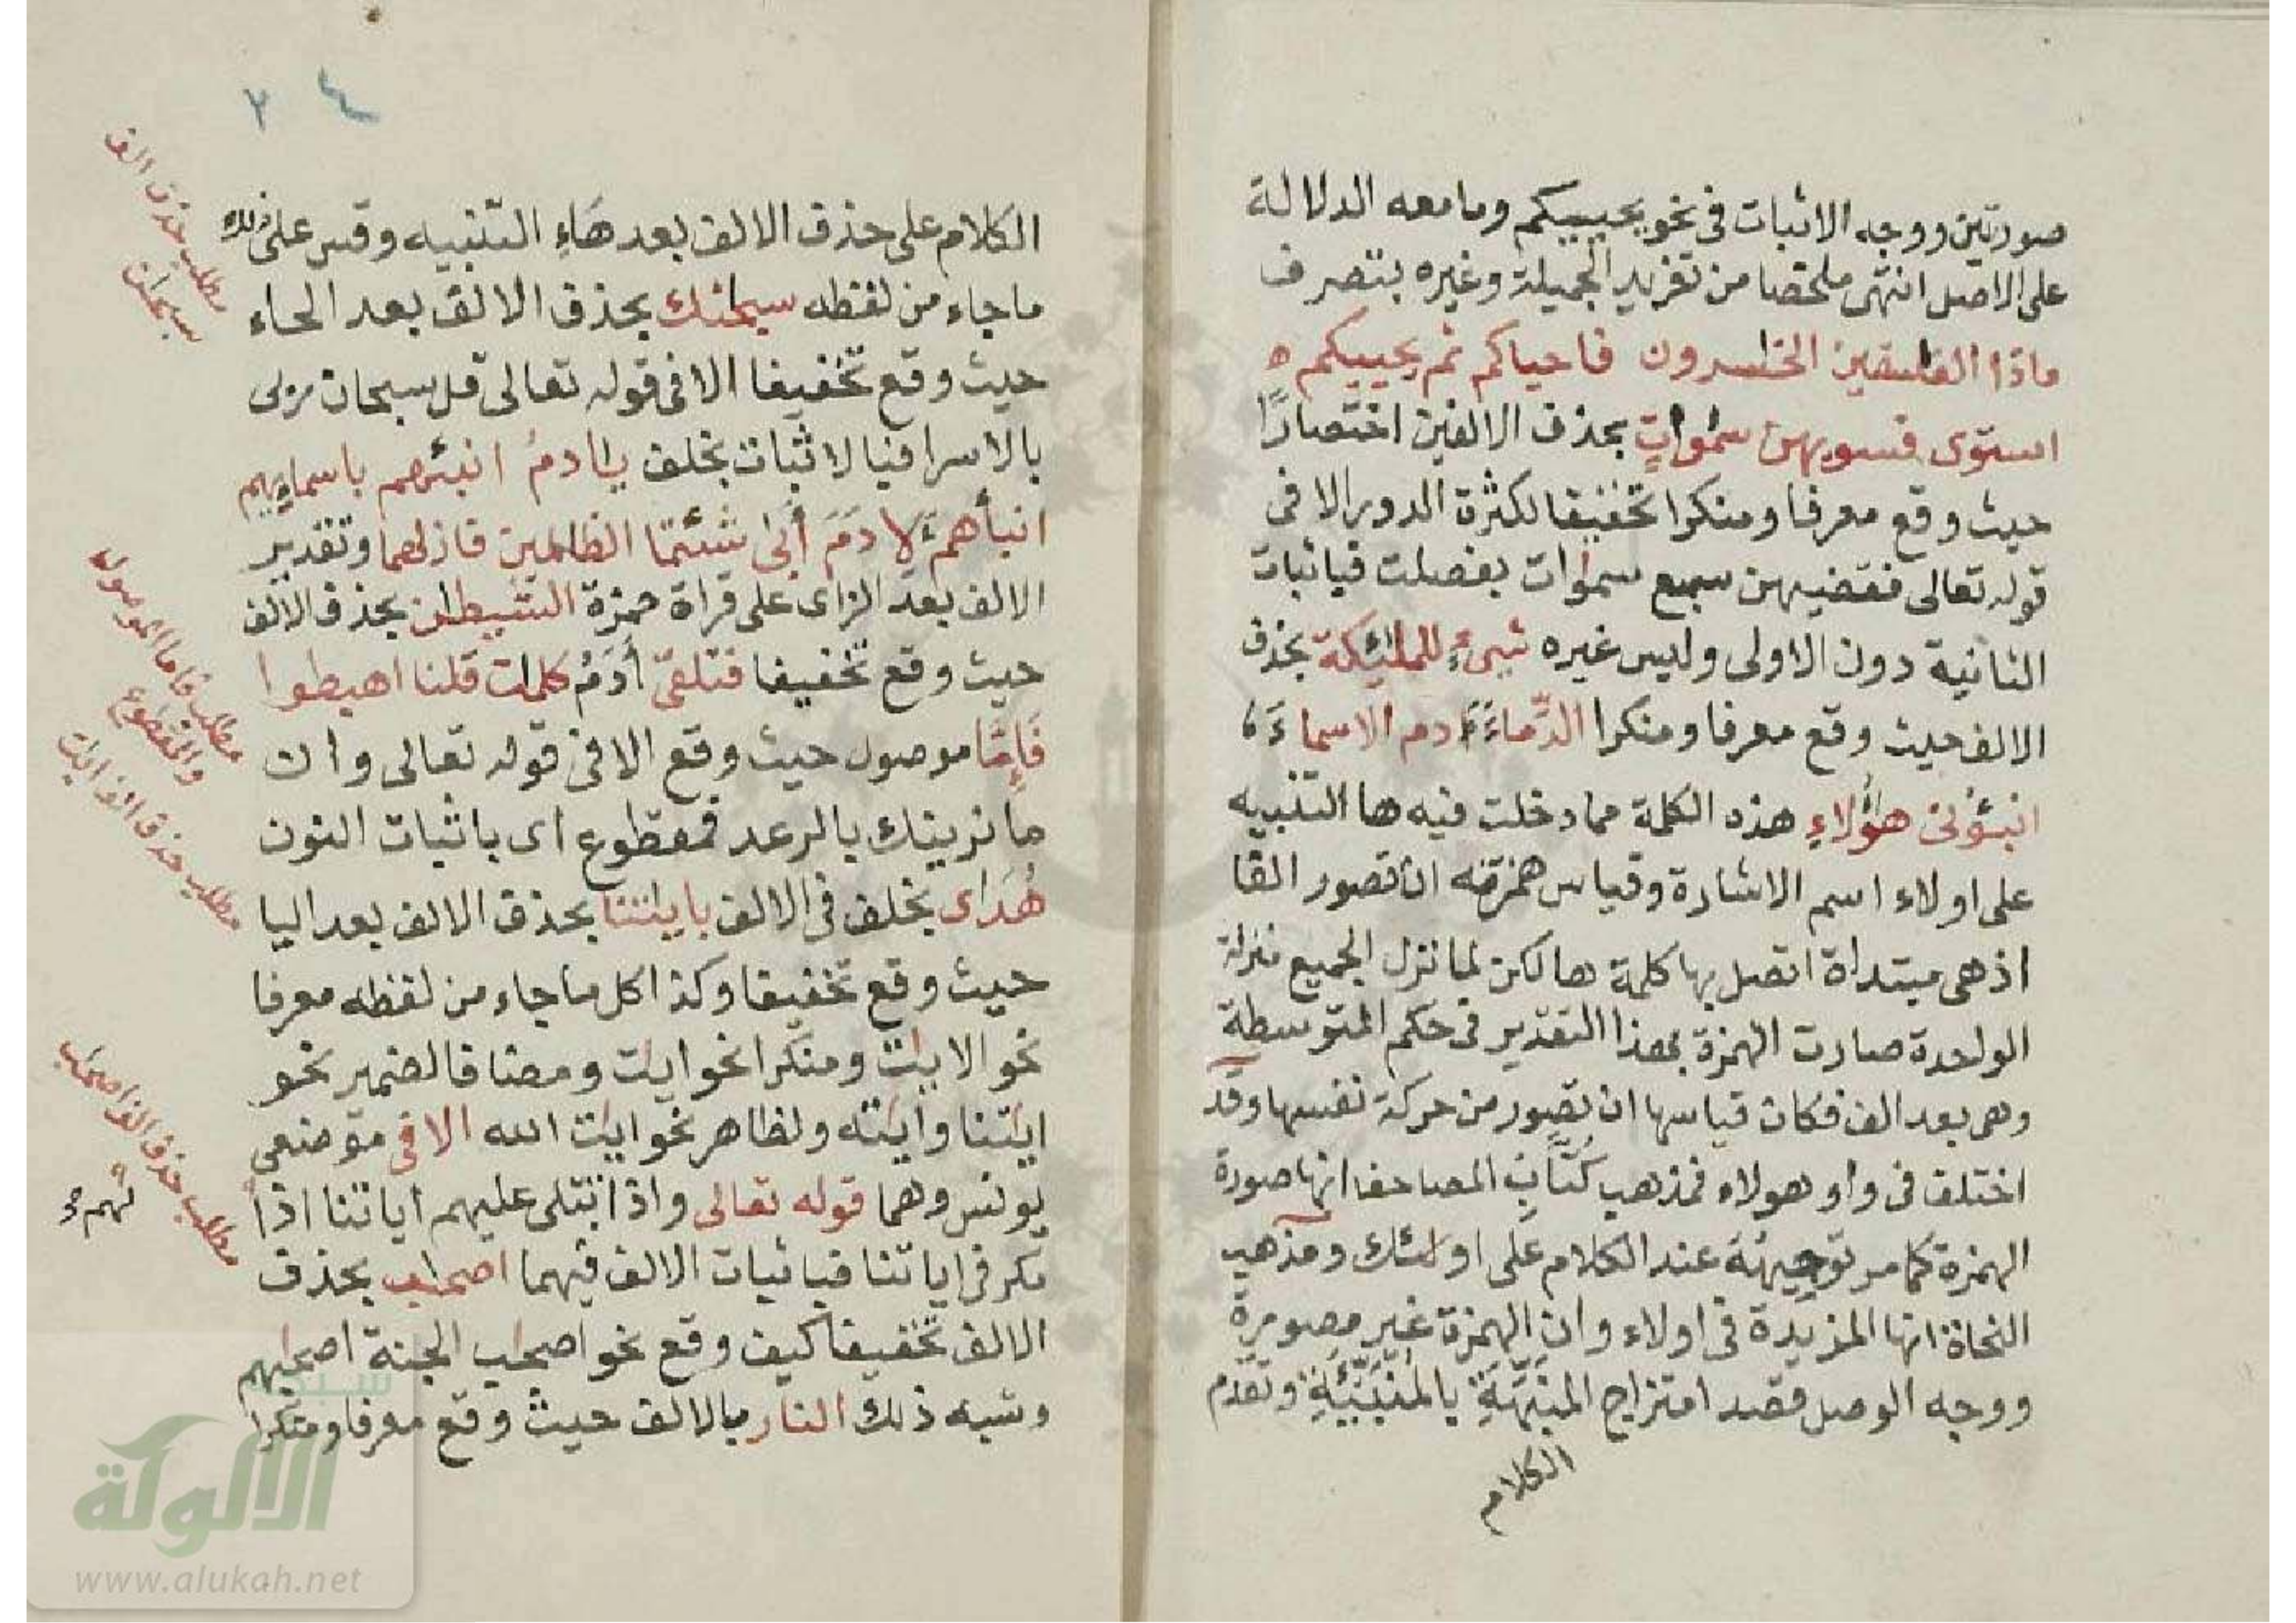 صورتين ووجه الاثبات فى نحو يحييكم وما معه الدلالة
على الاصل انتهى ملخصا من تقريب الجميلة وغيره بتصرف
ماذا الفسقين الخسرون فاحياكم ثم يحييكم ه
استوى فسويهن سموات بحذف الالفين اختصارا
حيث وقع معرفا ومنكرا تخفيفا لكثرة الدور الا فى
قوله تعالى فقضيهن سبع سموات بفصلت فباثبات
الثانية دون الاولى وليس غيره شىء للملئكة بحذف
الالف حيث وقع معرفا ومنكرا الدماء ءادم الاسماء
انبئونى هؤلاء هذه الكلمة مما دخلت فيه ها التنبيه
على اولاء اسم الاشارة وقياس همزته ان تصور الفا
اذ هى مبتدأة اتصل بها كلمة ها لكن لما نزل الجميع منزلة
الواحدة صارت الهمزة بهذا التقدير فى حكم المتوسطة
وهى بعد الف فكان قياسها ان تصور من حركة نفسها وقد
اختلف فى واو هولاء فمذهب كتاب المصاحف انها صورة
الهمزة كما مر توجيهه عند الكلام على اولئك ومذهب
النحاة انها المزيدة فى اولاء وان الهمزة غير مصورة
ووجه الوصل قصد امتزاج المنبهة بالمنبئة وتقدم
الكلام
٢٤
الكلام على حذف الالف بعد هاء التنبيه وقس على هذا
ما جاء من لفظه سبحنك بحذف الالف بعد الحاء
حيث وقع تخفيفا الا فى قوله تعالى قل سبحان ربى
بالاسرا فبالاثبات بخلف يادم انبئهم باسمايهم
انبأهم لادم أبى شئتما الظالمين فازلهما وتقدير
الالف بعد الزاى على قراة حمزة الشيطن بحذف الالف
حيث وقع تخفيفا فتلقى أدم كلمت قلنا اهبطوا
فإما موصول حيث وقع الا فى قوله تعالى وان
ما نرينك بالرعد فمقطوع اى باثبات النون
هداى بخلف فى الالف بايتنا بحذف الالف بعد اليا
حيث وقع تخفيفا وكذا كل ما جاء من لفظه معرفا
نحو الاييت ومنكرا نحو ايت ومضافا لضمير نحو
ايتنا وايته ولظاهر نحو ايت الله الا فى موضعى
يونس وهما قوله تعالى واذا تتلى عليهم اياتنا اذا
لهم مكر فى اياتنا فباثبات الالف فيهما اصحب بحذف
الالف تخفيفا كيف وقع نحو اصحب الجنة اصحبهم
وشبه ذلك النار بالالف حيث وقع معرفا ومنكرا
مطلب حذف الف
سبحان
مطلب فاما الموصول
والمقطوع
مطلب حذف الف ايت
مطلب حذف الف اصحب
شبكة
الألوكة
www.alukah.net